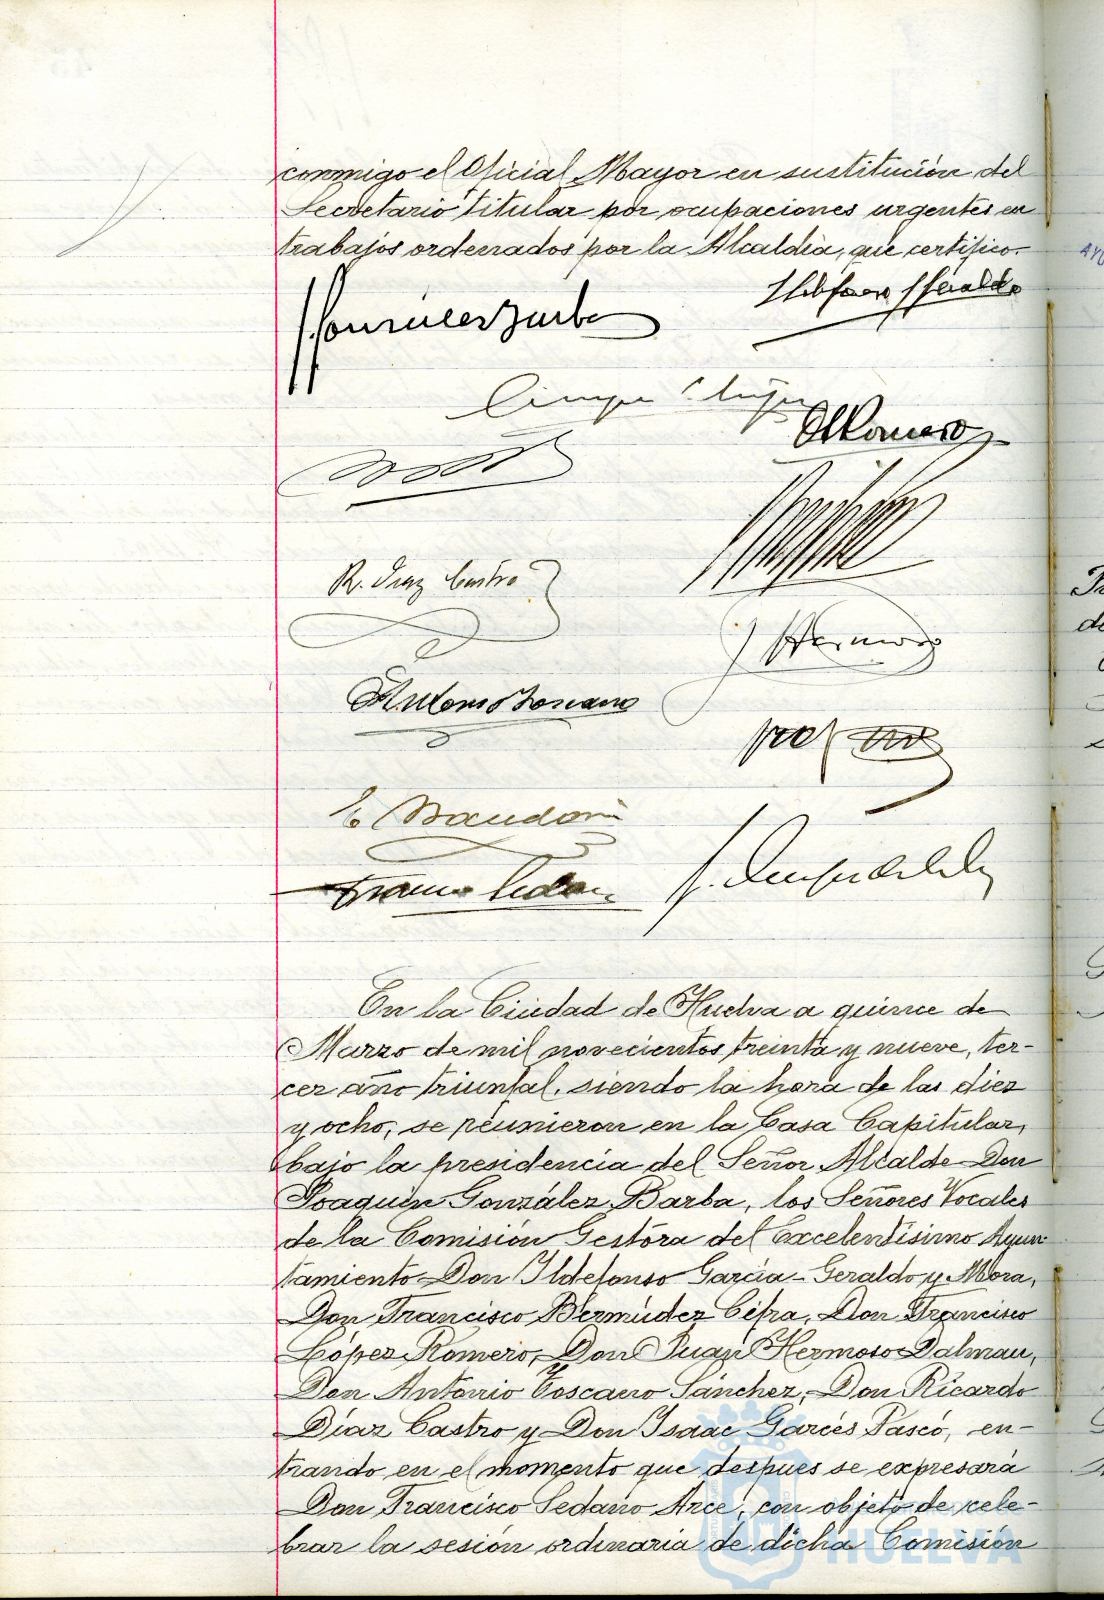 conmigo el Oficial Mayor en sustitución del
Secretario titular por ocupaciones urgentes en
trabajos ordenados por la Alcaldía, que certifico.
R. Díaz Castro
Antonio Toscano
En la Ciudad de Huelva a quince de
Marzo de mil novecientos treinta y nueve, ter-
cer año triunfal, siendo la hora de las diez
y ocho, se reunieron en la Casa Capitular,
bajo la presidencia del Señor Alcalde Don
Joaquín González Barba, los Señores Vocales
de la Comisión Gestora del Excelentísimo Ayun-
tamiento Don Ildefonso García-Geraldo y Mora,
Don Francisco Bermúdez Cifra, Don Francisco
López Romero, Don Juan Hermoso Dalmau,
Don Antonio Toscano Sánchez, Don Ricardo
Díaz Castro y Don Isaac Garcés Pascó, en-
trando en el momento que después se expresará
Don Francisco Sedano Arce, con objeto de cele-
brar la sesión ordinaria de dicha Comisión
HUELVA